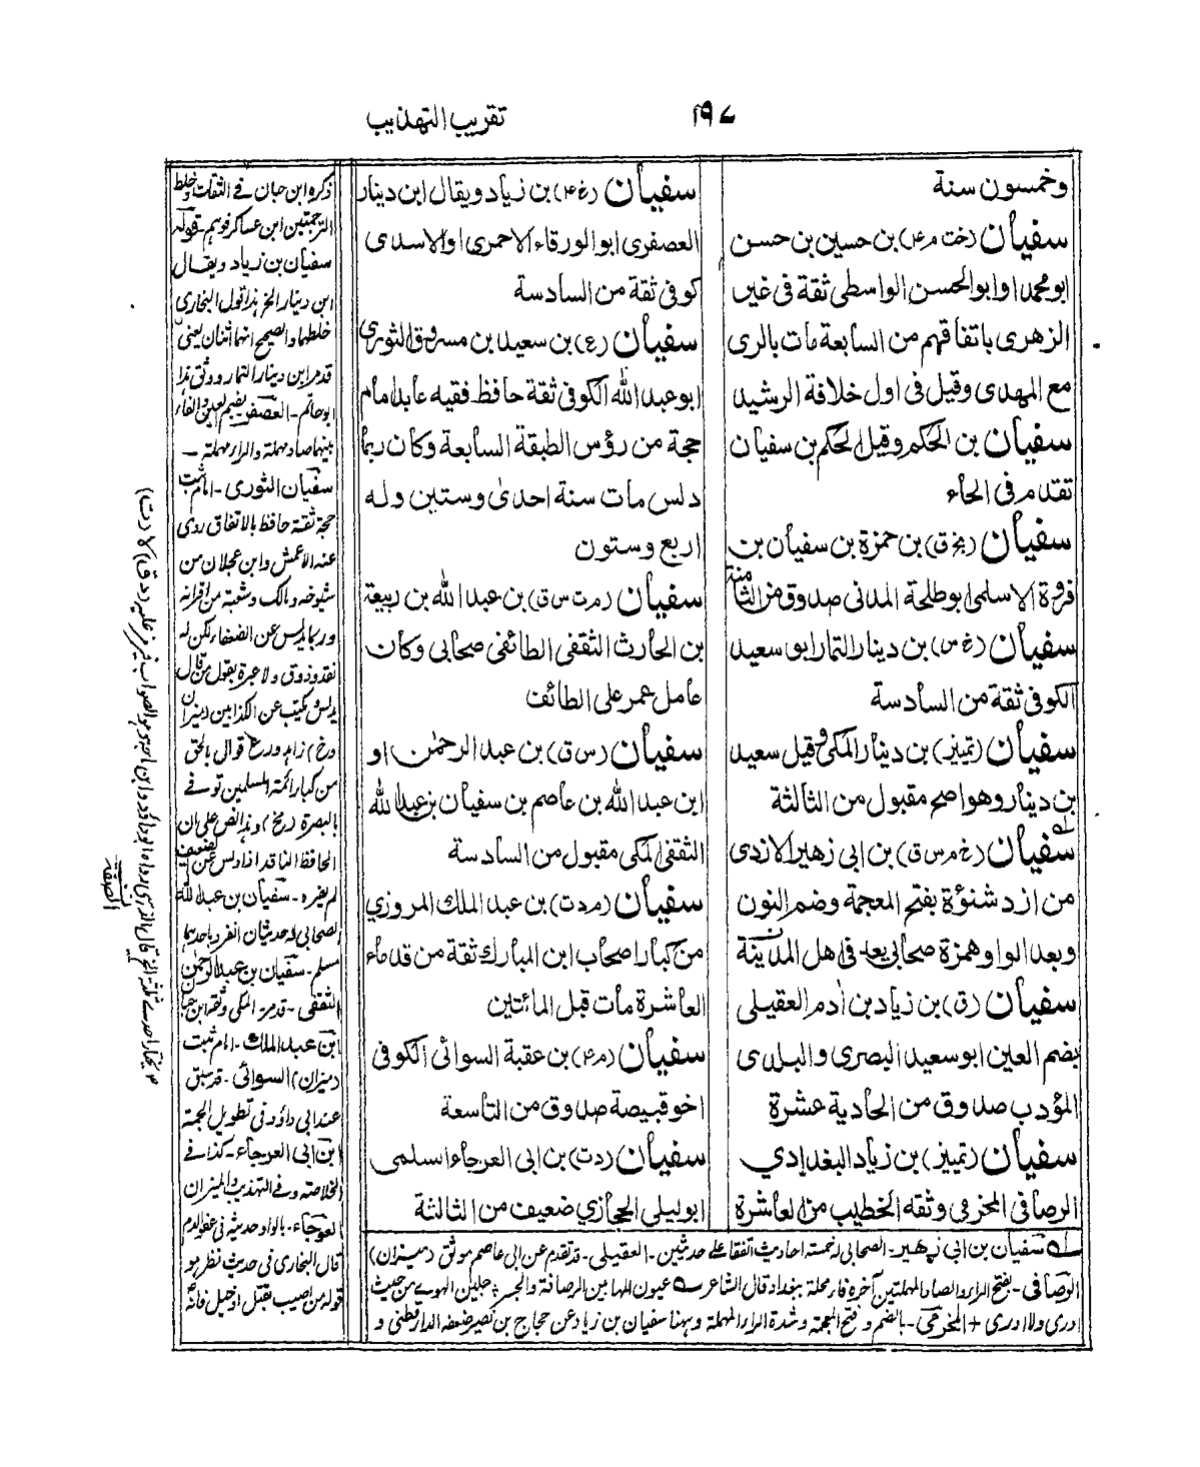 تقريب التهذيب
١٩٧
وخمسون سنة
سفيان (خت م ٤) بن حسين بن حسن
ابو محمد او ابو الحسن الواسطى ثقة فى غير
الزهرى باتفاقهم من السابعة مات بالرى
مع المهدى وقيل فى اول خلافة الرشيد
سفيان بن الحكم وقيل الحكم بن سفيان
تقدم فى الحاء
سفيان (بخ ق) بن حمزة بن سفيان بن
فروة الاسلمى ابو طلحة المدنى صدوق من الثامنة
سفيان (غ س) بن دينار التمار ابو سعيد
الكوفى ثقة من السادسة
سفيان (تمييز) بن دينار المكى وقيل سعيد
بن دينار وهو اصح مقبول من الثالثة
سفيان (خ م س ق) بن ابى زهير الازدى
من ازد شنؤة بفتح المعجمة وضم النون
وبعد الواو همزة صحابى يعد فى اهل المدينة
سفيان (ق) بن زياد بن آدم العقيلى
بضم العين ابو سعيد البصرى والبلدى
المؤدب صدوق من الحادية عشرة
سفيان (تمييز) بن زياد البغدادي
الرصافى المخرمى وثقه الخطيب من العاشرة
سفيان (غ ٤) بن زياد ويقال ابن دينار
العصفرى ابو الورقاء الاحمرى او الاسدى
كوفى ثقة من السادسة
سفيان (ع) بن سعيد بن مسروق الثورى
ابو عبد الله الكوفى ثقة حافظ فقيه عابد امام
حجة من رؤس الطبقة السابعة وكان ربما
دلس مات سنة احدى وستين وله
اربع وستون
سفيان (م ت س ق) بن عبد الله بن ربيعة
بن الحارث الثقفى الطائفى صحابى وكان
عامل عمر على الطائف
سفيان (س ق) بن عبد الرحمن او
ابن عبد الله بن عاصم بن سفيان بن عبد الله
الثقفى المكى مقبول من السادسة
سفيان (مد ت) بن عبد الملك المروزي
من كبار اصحاب ابن المبارك ثقة من قدماء
العاشرة مات قبل المائتين
سفيان (م ٤) بن عقبة السوائى الكوفى
اخو قبيصة صدوق من التاسعة
سفيان (د ت) بن ابى العرجاء السلمى
ابو ليلى الحجازي ضعيف من الثالثة
ذكره ابن حبان فے الثقات وخلط
الترجمتين ابن عساكر فوهم - قوله
سفيان بن زياد ويقال
ابن دينار الخ هذا قول البخارى
خلطهما والصحيح انهما اثنان يعنى
قدم ابن دينار التمار ووثق هذا
ابو حاتم - العصفرى بضم العين والفاء
بينهما صاد مهملة والراء مهملة -
سفيان الثورى - امام ثبت
حجة ثقة حافظ بالاتفاق روى
عنه الاعمش وابن عجلان من
شيوخه ومالك وشعبة من اقرانه
وربما يدلس عن الضعفاء لكن له
نقد وذوق ولا عبرة بقول من قال
يدلس ويكتب عن الكذابين (ميزان)
ورع زاهد قوال بالحق
من كبار ائمة المسلمين توفے
بالبصرة
الحافظ الناقد اذا دلس عن الضعيف
لم يضره - سفيان بن عبد الله
الصحابى له حديثان انفرد باحدهما
مسلم - سفيان بن عبد الرحمن
الثقفى - المكى وثقه ابن حبان
ابن عبد الملك - امام ثبت
(ميزان) السوائى - قد سبق
عند ابى داؤد فى تطويل الجمة
ابن ابى العرجاء - كذا فے
الخلاصة وفے التهذيب والميزان
العوجاء - بالواو حديثه فى عفو الدم
قال البخارى فى حديثه نظر هو
قوله من اصيب بقتل او خبل فانه
سفيان بن ابى زهير - الصحابى له خمسة احاديث اتفقا على حديثين - العقيلى - قد تقدم عن ابى عاصم موثق (ميزان)
الرصافى - بفتح الراء والصاد المهملتين آخره فاء محلة ببغداد قال الشاعر عيون المها بين الرصافة والجسر جلبن الهوى من حيث
ادرى ولا ادرى + المخرمى - بالضم وفتح المعجمة وشدة الراء المهملة وههنا سفيان بن زياد عن حجاج بن نصير ضعفه الدارقطنى و